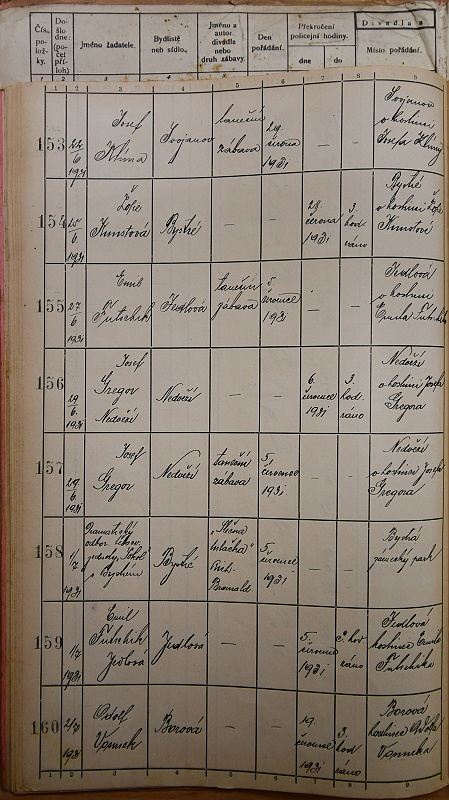 Čís. položky.
Došlo dne: (počet příloh)
Jméno žadatele.
Bydliště neb sídlo.
Jméno a autor divadla nebo druh zábavy.
Den pořádání.
Překročení policejní hodiny.
dne
do
Divadla a
Místo pořádání.
1 2 3 4 5 6 7 8 9
153
22/6 1931
Josef Klima
Svojanov
taneční zábava
29. června 1931
—
—
Svojanov v hostinci Josefa Klimy
154
25/6. 1931
Žofie Kunstová
Bystré
—
—
28. června 1931
3. hod. ráno
Bystré v hostinci Žofie Kunstové
155
27/6 1931
Emil Futschik
Jedlová
taneční zábava
5. července 1931
—
—
Jedlová v hostinci Emila Futschika
156
29/6 1931
Josef Gregor Nedvězí
Nedvězí
—
—
6. července 1931
3. hod. ráno
Nedvězí v hostinci Josefa Gregora
157
29/6. 1931
Josef Gregor
Nedvězí
taneční zábava
5. července 1931
—
—
Nedvězí v hostinci Josefa Gregora
158
1/7 1931
Dramatický odbor
jednoty Sokol v Bystrém
Bystré
5. července 1931
—
—
zámecký park
159
1/7 1931
Emil Futschik Jedlová
Jedlová
—
—
5. července 1931
3. hod ráno
Jedlová hostinec Emila Futschika
160
2/7 1931
Adolf
Borová
—
—
19. července 1931
3. hod ráno
Borová hostinec Adolfa
1 2 3 4 5 6 7 8 9